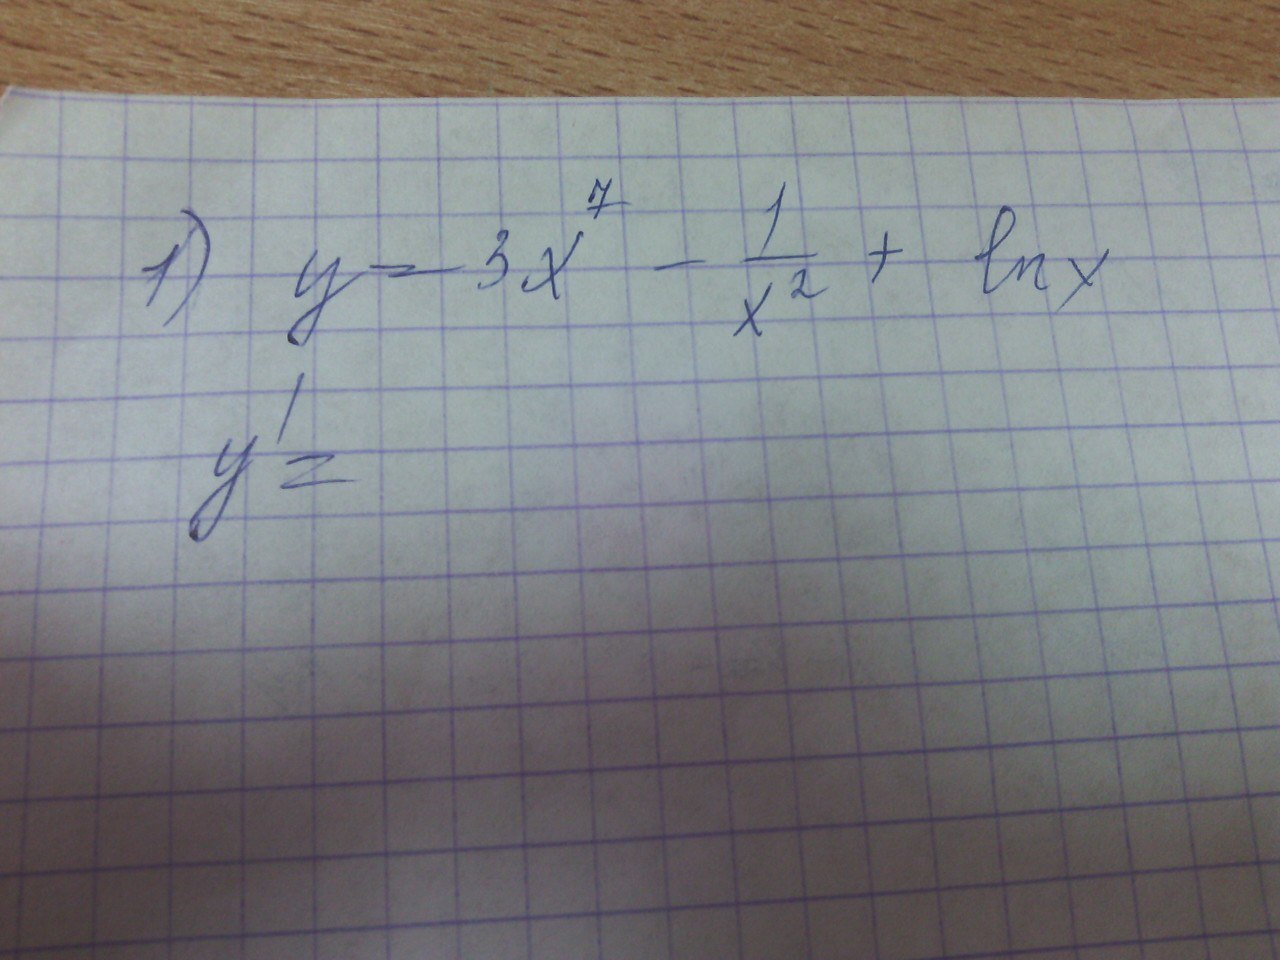 1) y = 3x^7 - 1/x^2 + ln x
y' =